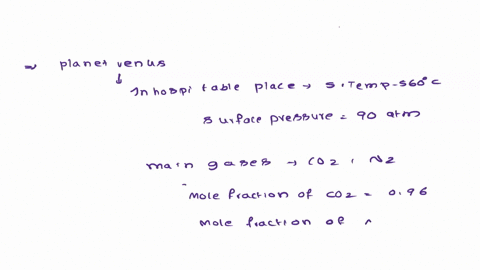 ~ planet venus
↓
Inhospitable place → s.Temp-560°C
surface pressure = 90 atm
main gases → CO2, N2
mole fraction of CO2 = 0.96
mole fraction of